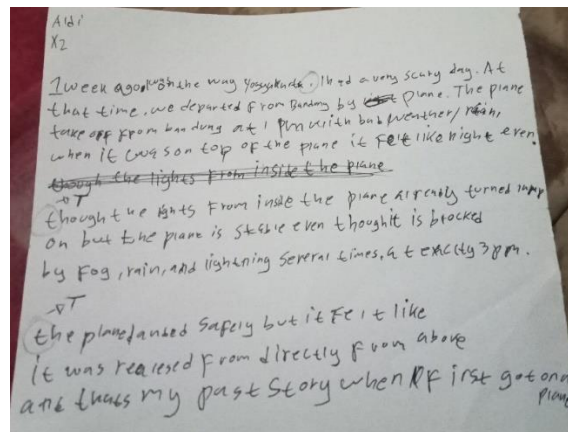 Aldi
X2
1 week ago on the way Yogyakarta, I had a very scary day. At
that time, we departed from Bandung by plane. The plane
take off from bandung at 1 pm with bab weather/rain,
when it was on top of the plane it felt like night even
though the lights from inside the plane
→T
though the lights from inside the plane already turned
on but the plane is stable even thoughit is blocked
by fog, rain, and lightning several times, at exactly 3 pm.
→T
the plane landed safely but it felt like
it was realesed from directly from above
and thats my past story when I first got on a
plane